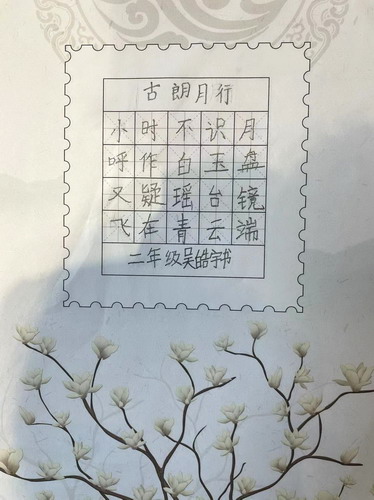 古朗月行
小时不识月
呼作白玉盘
又疑瑶台镜
飞在青云端
二年级吴皓宇书